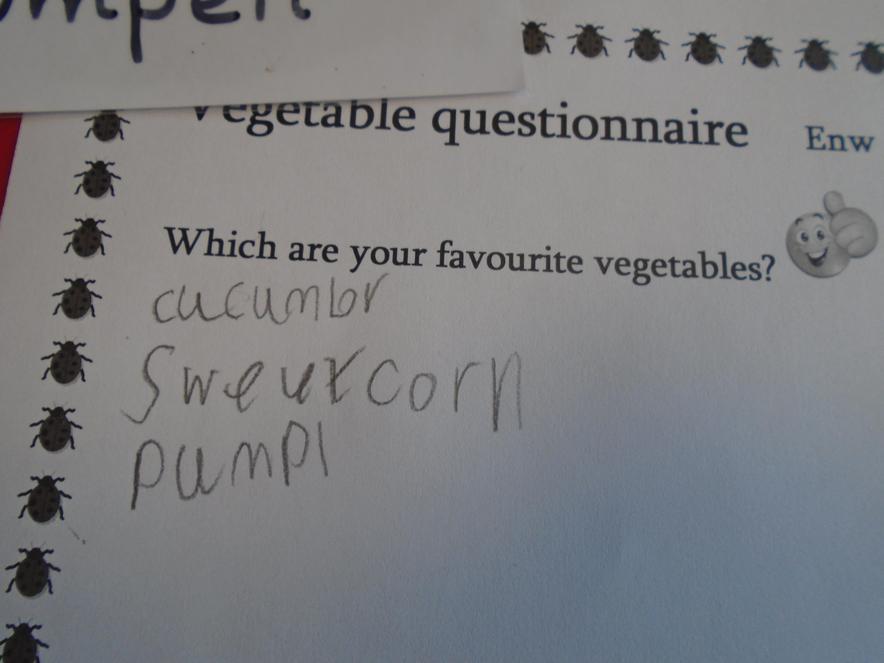 Vegetable questionnaire Enw
Which are your favourite vegetables?
cucumbr
Sweutcorn
pumpl